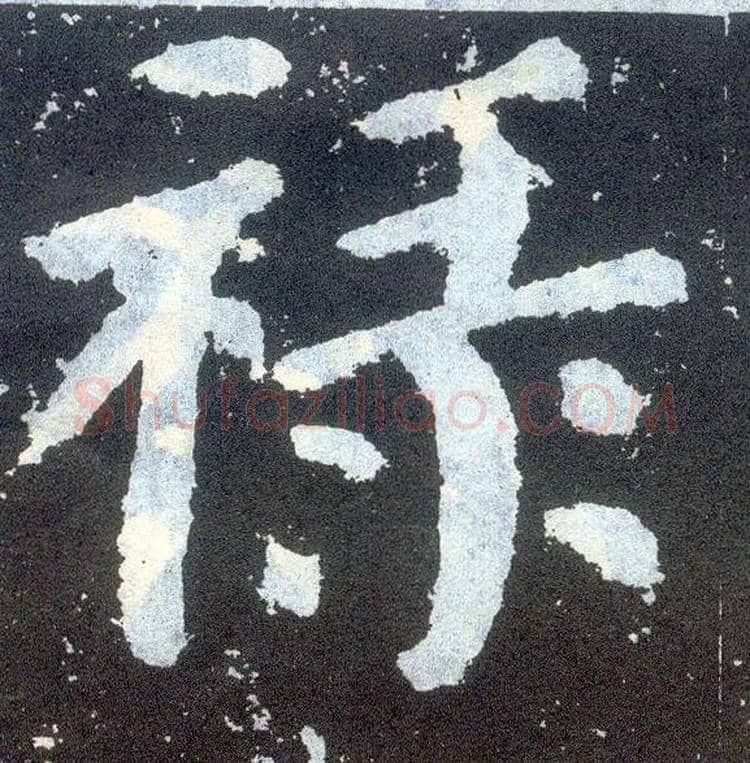 禄
Shufaziliao.COM